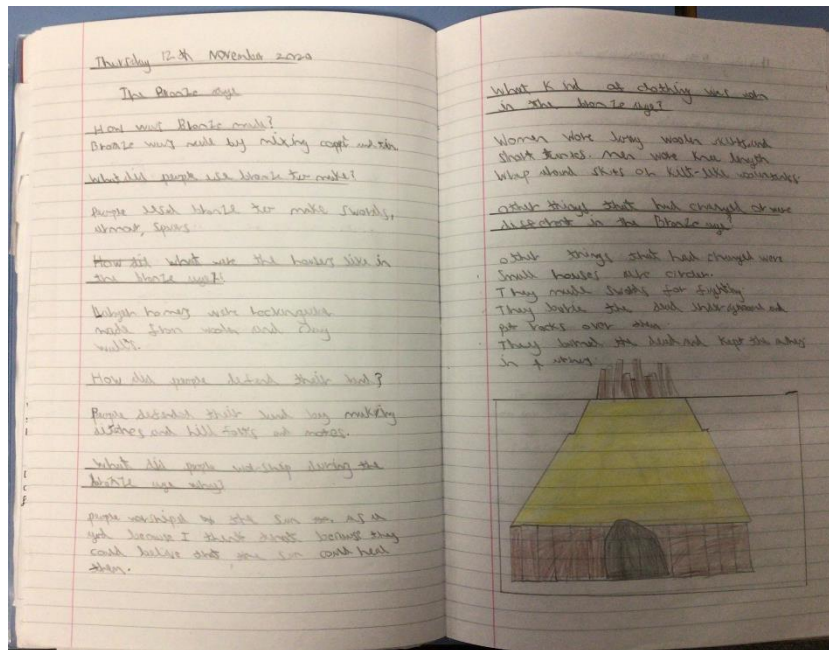 Thursday 12th November 2020
The Bronze age
How was Bronze made?
Bronze was made by mixing and tin.
What did people use bronze to make?
People used bronze to make swords,
armor, spears
How did what were the houses like in
the bronze age?
homes were
made from and clay
walls.
How did people defend their land?
People defended their land by making
ditches and hill forts and motes.
What did people worship during the
bronze age why?
people worshiped the sun as a
god because I think thats because they
could belive that the sun could heal
them.
What Kind of clothing was worn
in the bronze age?
Women wore long woolen skirts and
short tunics. Men wore knee length
wrap around skirts or kilt-like
other things that had changed or were
different in the Bronze age?
other things that had changed were
Small houses are circler.
They made swords for fighting
They the dead underground and
put rocks over them
They burned the dead and kept the ashes
in